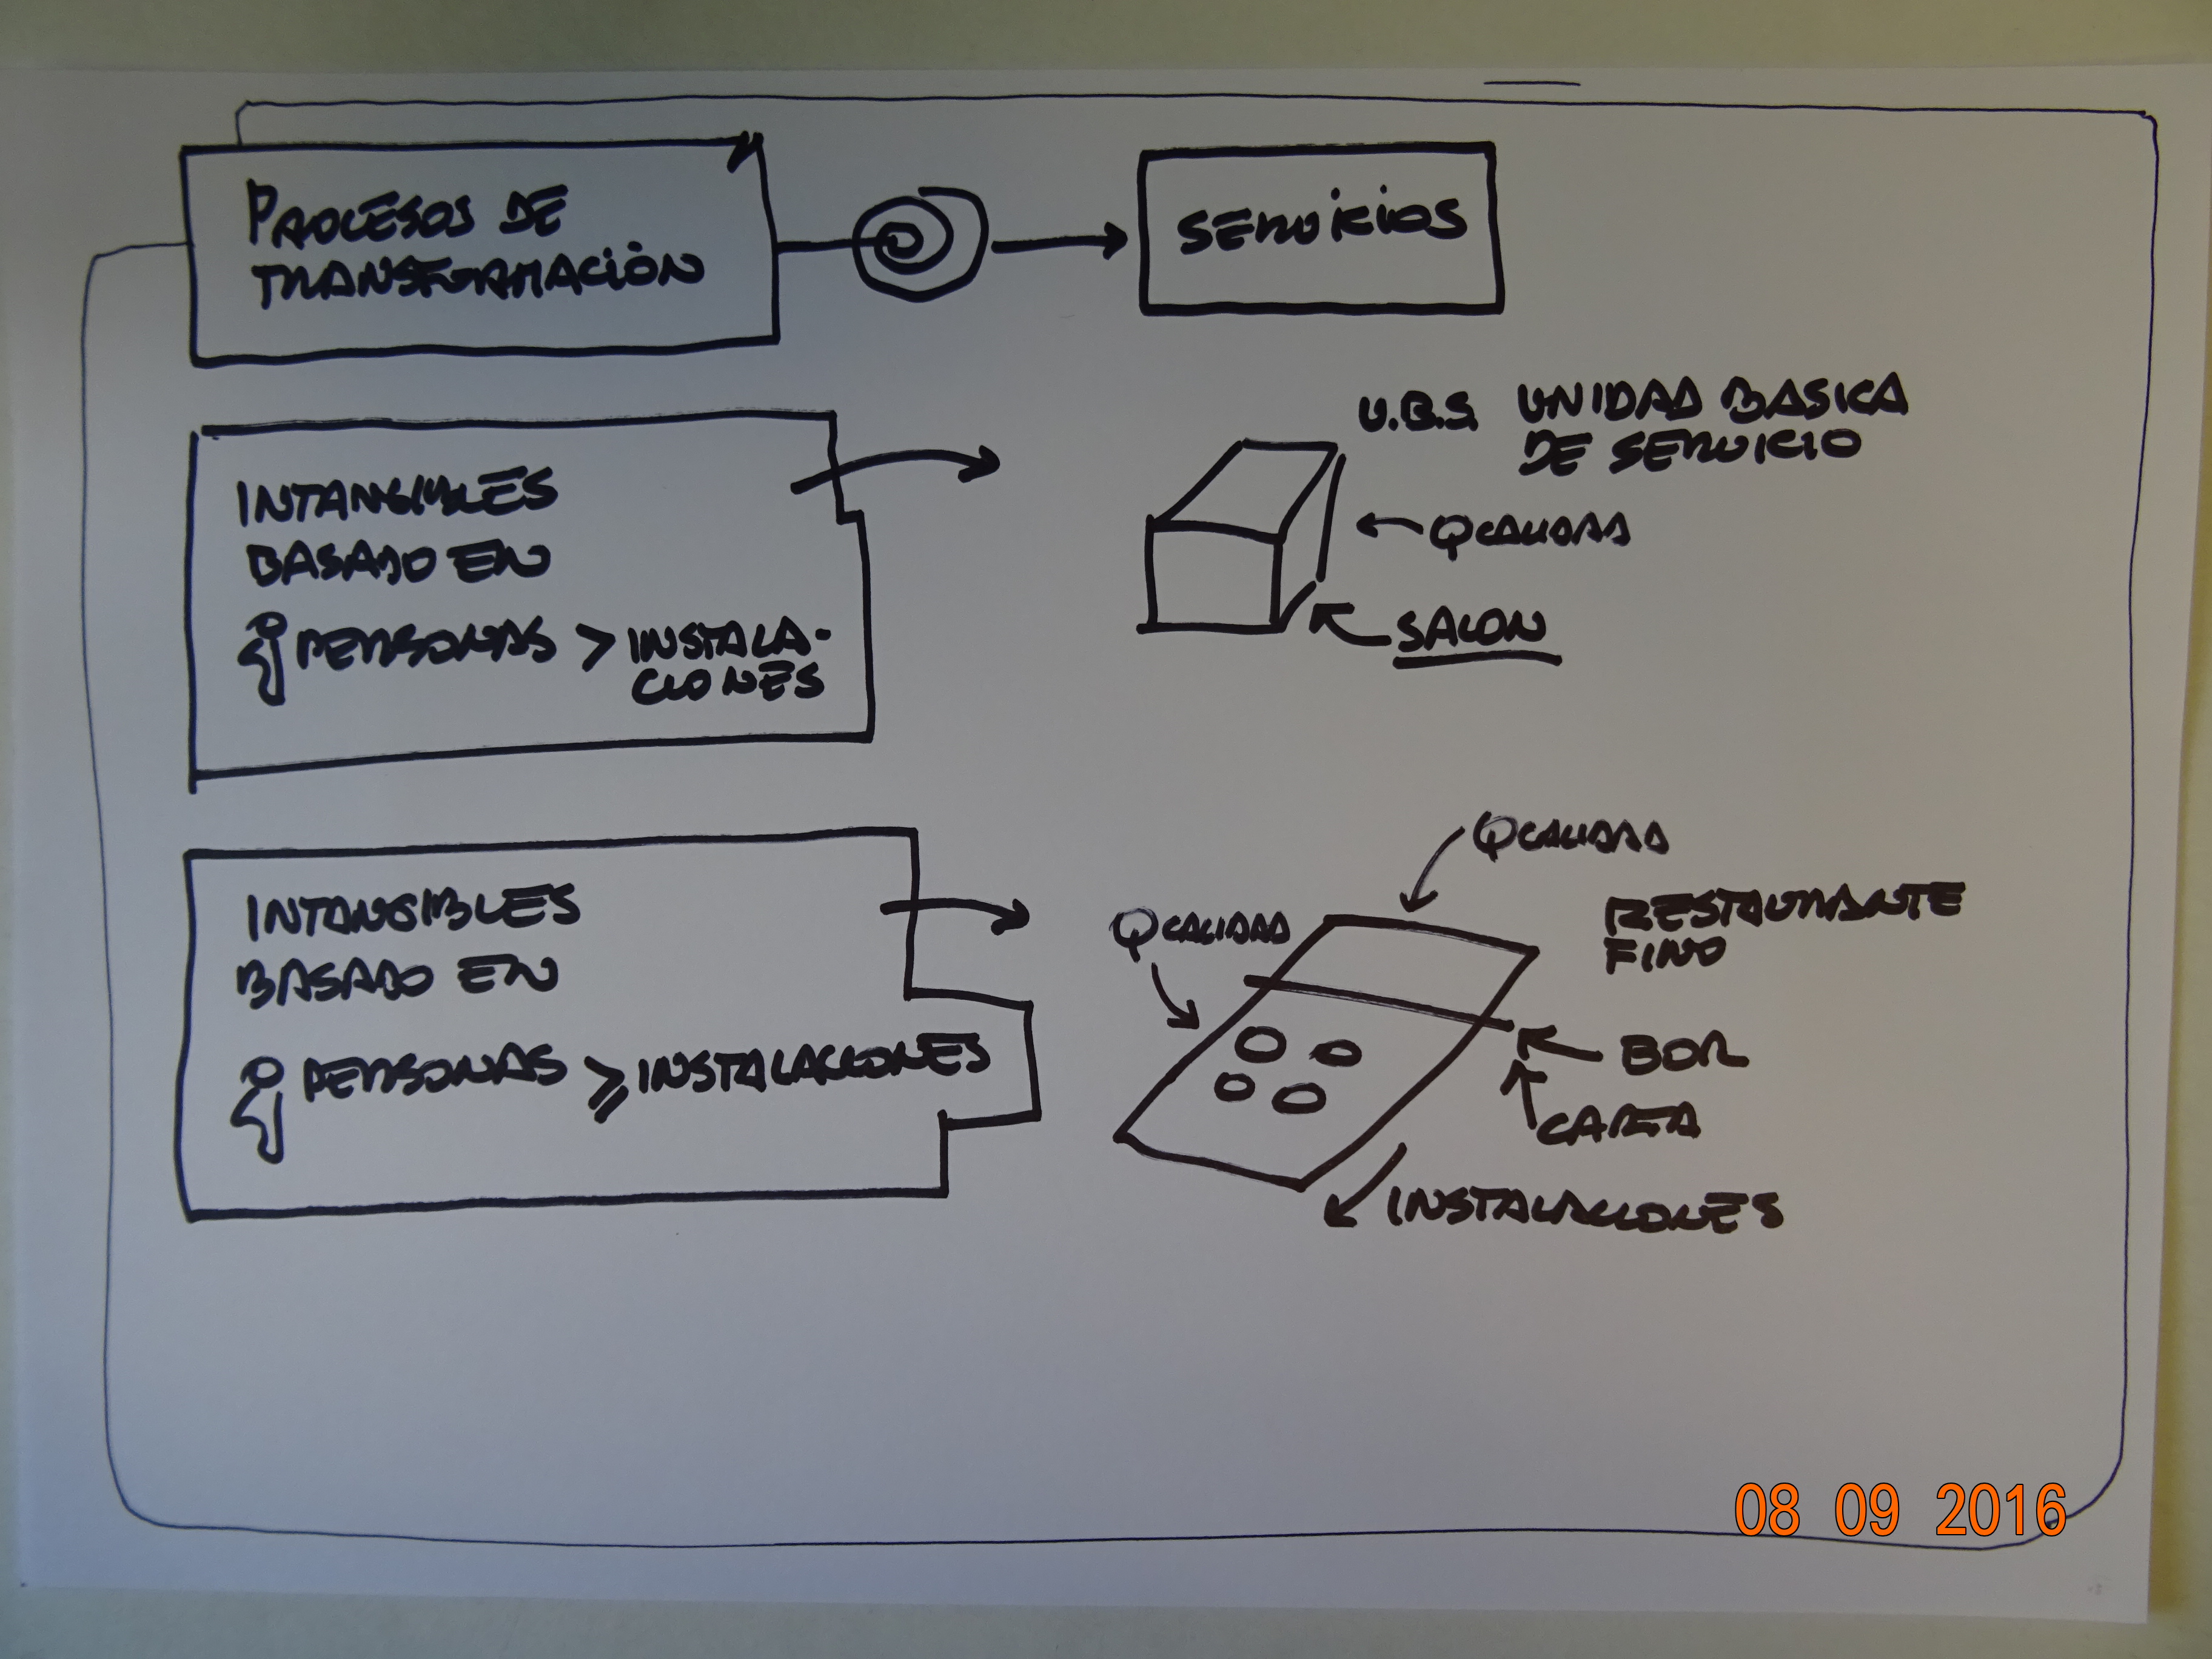 PROCESOS DE
TRANSFORMACIÓN
SERVICIOS
U.B.S. UNIDAD BASICA
DE SERVICIO
INTANGIBLES
BASADO EN
PERSONAS > INSTALA-
CIONES
Q CALIDAD
SALON
INTANGIBLES
BASADO EN
PERSONAS ≥ INSTALACIONES
Q CALIDAD
Q CALIDAD
RESTAURANTE
FINO
CARTA
INSTALACIONES
08 09 2016